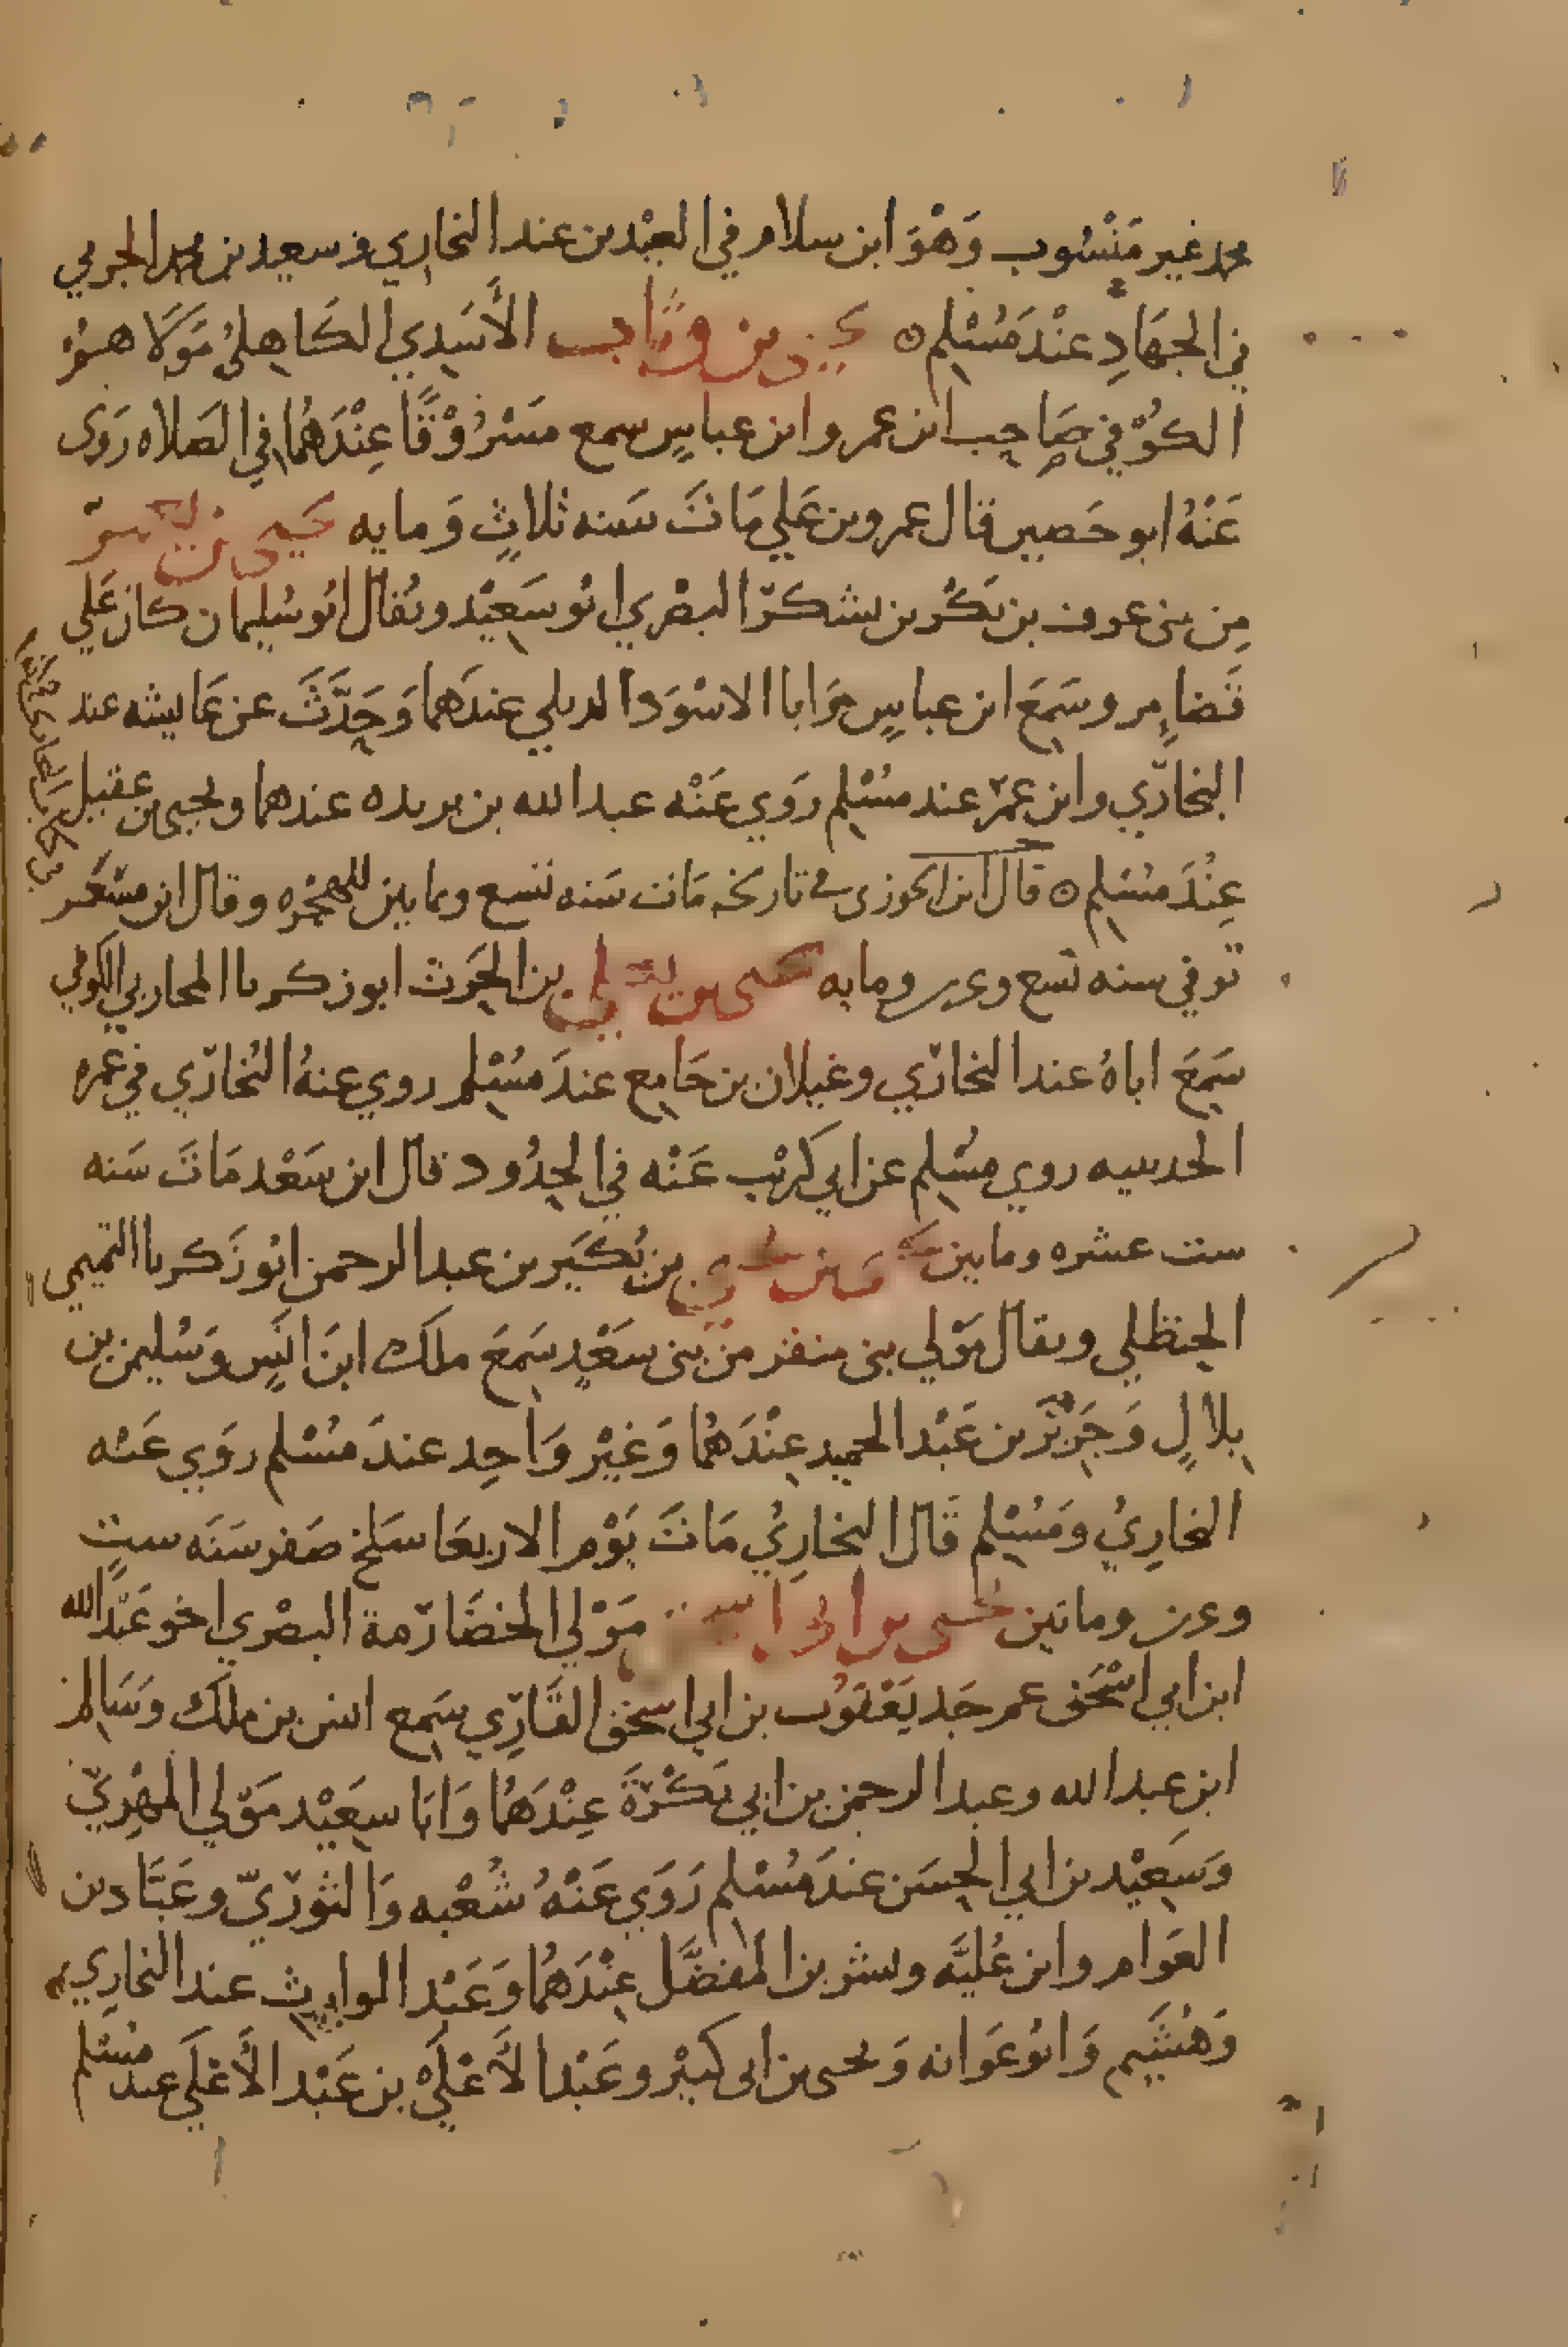 محمد غير مَنْسُوب وَهْوَ ابن سلام في العِيْدين عند البخاري وسعيد بن محمد الجرمي
في الجهَادِ عنْدَ مُسْلِم يحيى بن وثاب الأسَدِي الكَاهِليُ مَوْلاهم
الكوُفي صَاحِب ابن عمر وابن عباسٍ سمع مَسْرُوْقًا عِنْدَهُمَا في الصَلاه رَوَى
عَنْهُ ابو حَصين قال عمرو بن عَلي مَاتَ سَنه ثلاثٍ وَمايه يحيى بن يعمر
مِن بنى عوف بن بَكْر بن يشكر البصْري ابو سَعِيْد ويُقال ابُو سُليمان كان عَلي
قَضاءِ مرو سَمعَ ابن عباسٍ وَابا الاسْوَد الديلي عندَهما وَحَدَّثَ عن عَايشه عند
البخارِّي وابن عمرَ عند مُسْلم رَوَي عَنْه عبد الله بن بريده عندهما ويحيى بن عقيل
عِنْدَ مُسْلم قال ابن الجوزى فى تاريخه مَات سَنه تسع وثمانين للهجره وقال ابن
توفي سنه تسع وعشرين ومايه يحيى بن يعلى بن الحَرث ابو زكريا المحاربي الكوفي
سَمِعَ اباهُ عند البخارّي وغيلان بن جَامِع عندَ مُسْلم روي عنهُ البُخارّي في عمره
الحديبيه روي مسْلم عن ابي كُرَيْب عَنْه في الحدُود قال ابن سَعْد مَاتَ سَنه
ست عشره ومايتين يحيى بن يحيى بن بُكَيَر بن عبد الرحمن ابُو زَكريا التميمي
الحنظلي ويقال مَوْلي بنى منقر مِن بَنى سَعْدٍ سَمِعَ ملك ابنَ انَسٍ وَسُليمن بن
بِلالٍ وَجَرِيْرَ بن عَبْد الحميد عِنْدَهُمَا وَغيْر وَاحِد عندَ مُسْلم روَي عَنْه
البخارِيُ ومُسْلِم قَال البخارِيُ مَاتَ يَوْم الاربعَا سَلخ صَفر سَنَه ستٍ
وعشرين ومايتين يحيى بن ابى اسحق مَوْلي الحَضَارَمة البصْري اخو عَبْد الله
ابن ابي اسْحَق عم جَد يَعْقوُب بن ابي اسحق القَارِّي سَمِع انس بن ملك وَسَالم
ابن عبد الله وعبد الرحمن بن ابي بَكْرَةَ عِنْدَهُمَا وَابَا سعِيْد مَوْلي المهْرِيّ
وَسَعِيْد بن ابي الحسَن عندَ مُسْلِم رَوَي عَنْهُ شُعْبه وَالثوْرّيّ وعَبَّاد بن
العَوام وابن عُليَّه وبشر بن المُفضَّل عِنْدَهُمَا وَعَبْد الوارث عند البخارِي
وَهُشَيم وَابُو عَوانه وَيحيى بن ابى كثيْر وعَبْد الأَعْلَي بن عَبْد الأَعْلَي عند مُسْلم